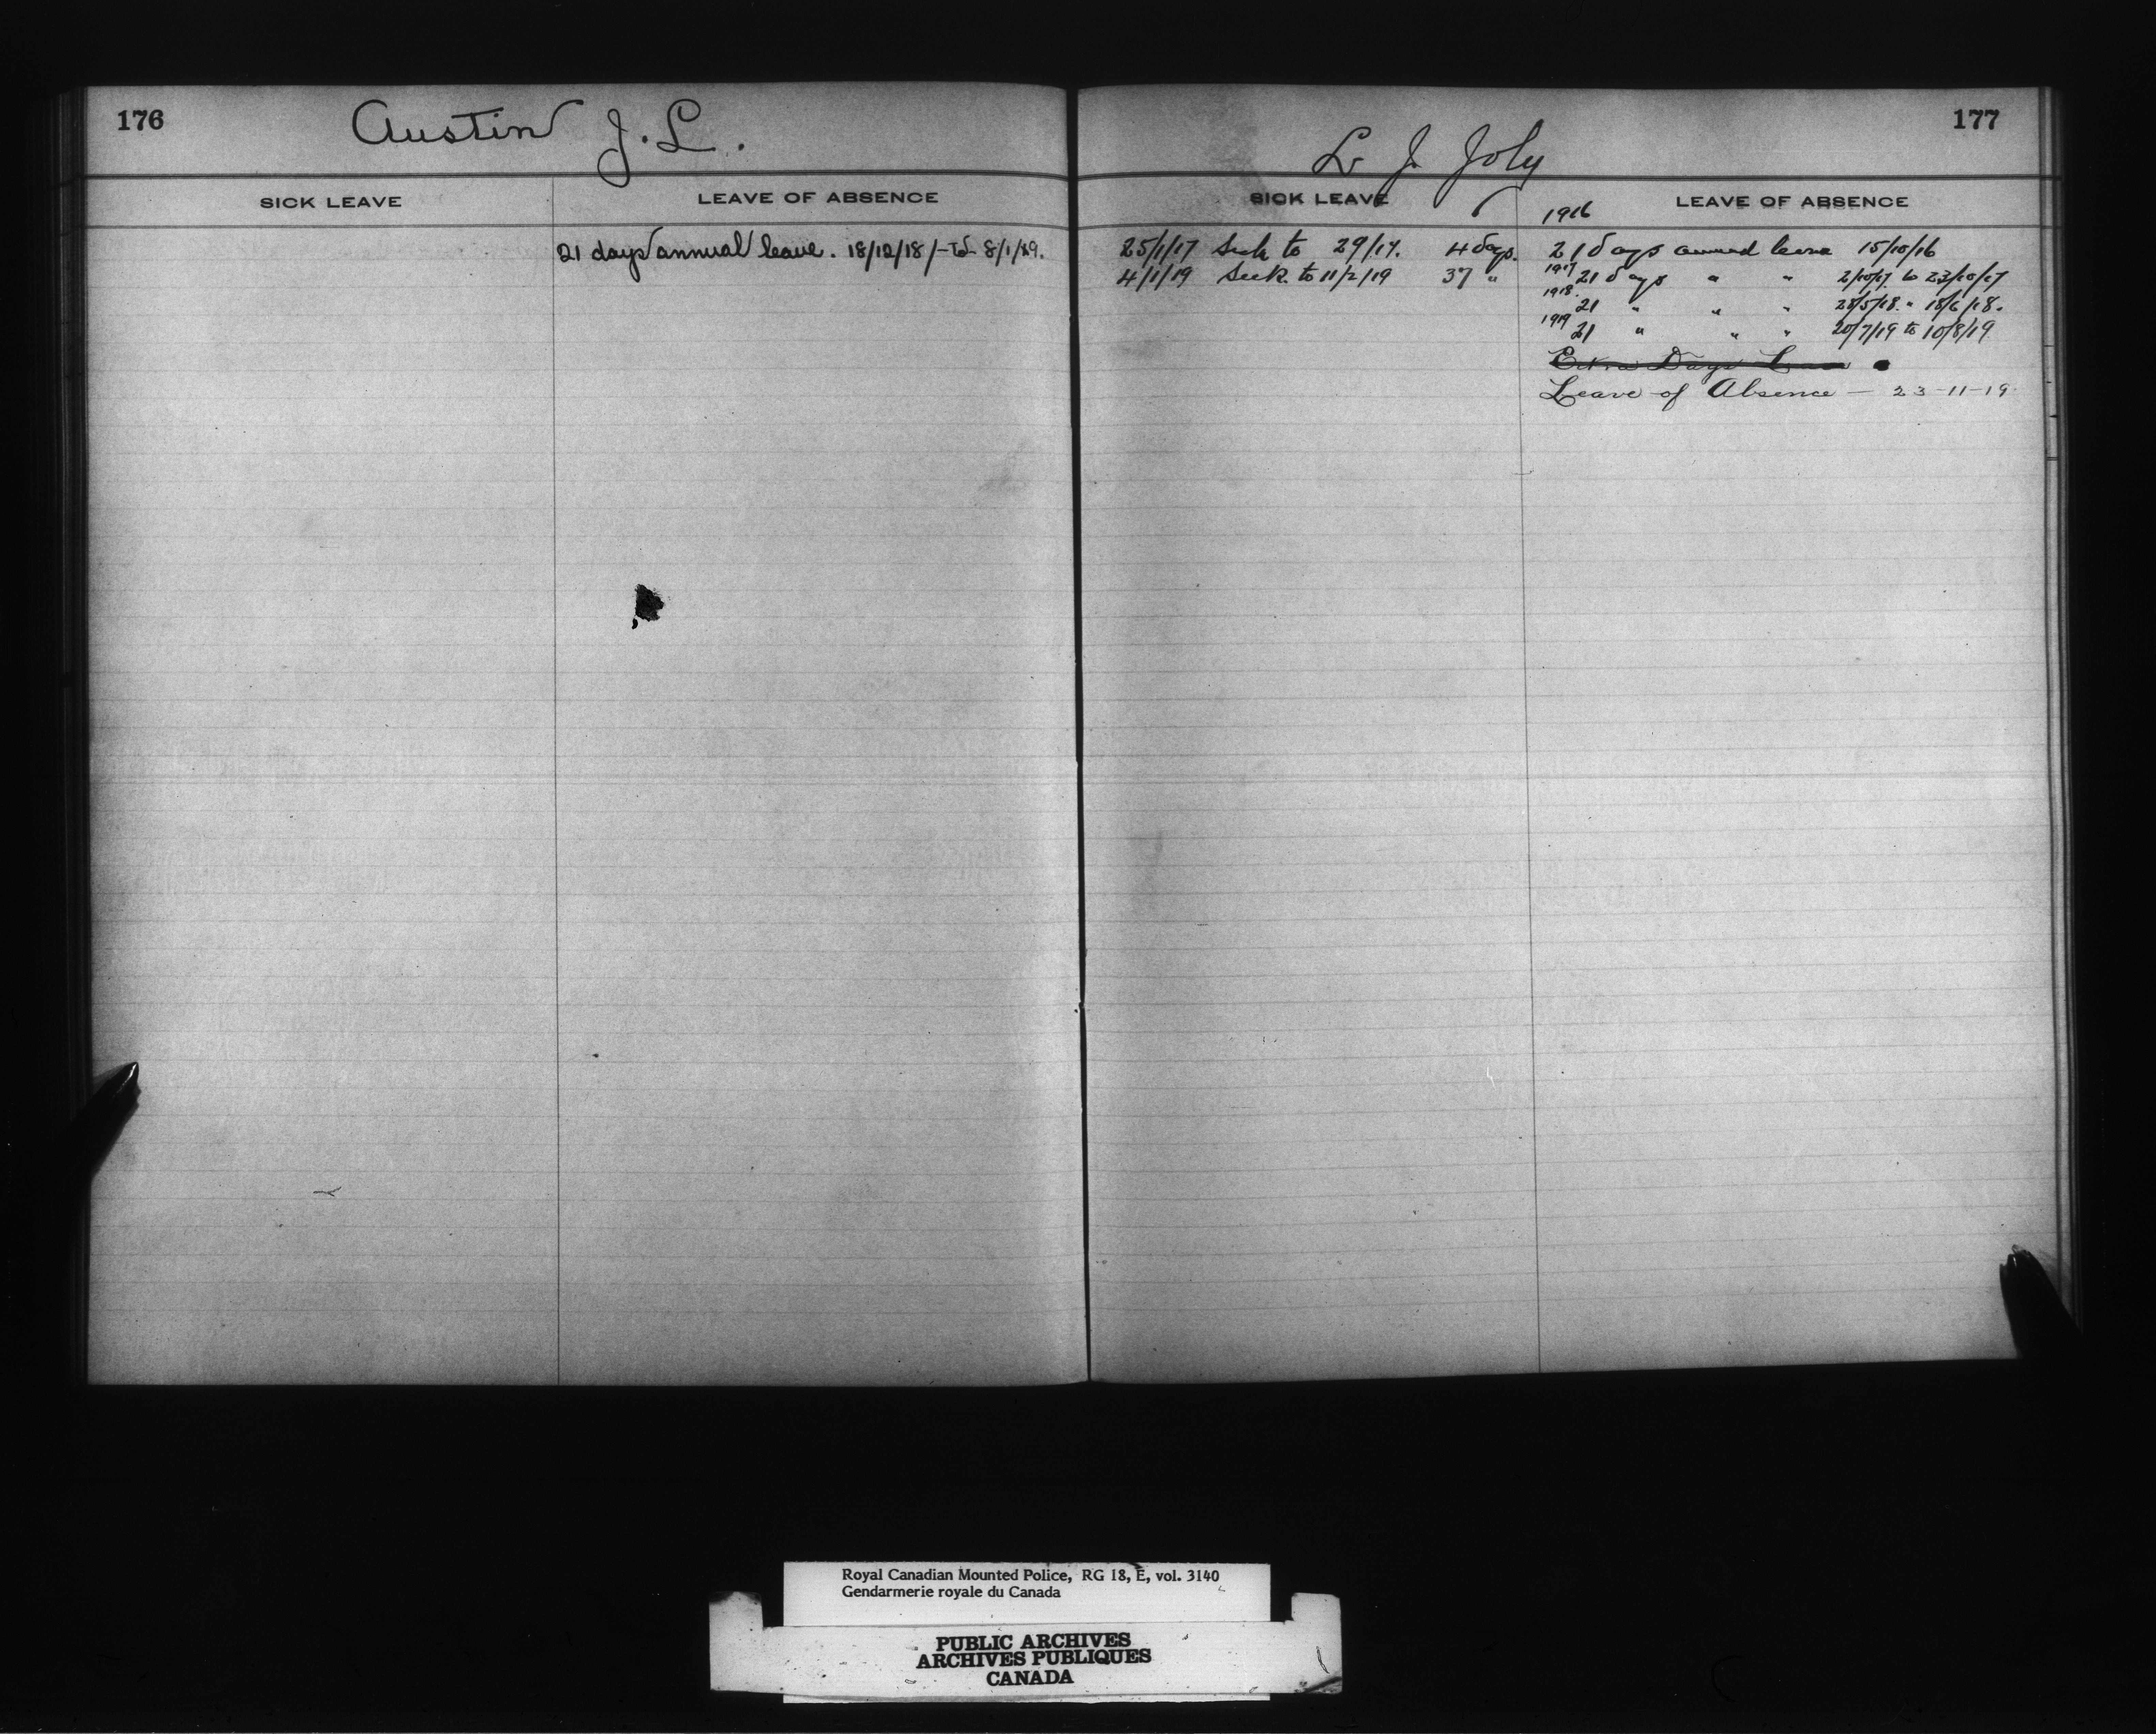 176
Austin J. L.
SICK LEAVE
LEAVE OF ABSENCE
21 days annual leave. 18/12/18/-to- 8/1/19.
177
L. J. Joly
SICK LEAVE
25/1/17 Sick to 29/17. 4 days.
4/1/19 Sick to 11/2/19 37 "
1916
LEAVE OF ABSENCE
21 days annual leave 15/10/16
1917 21 days " " 2/10/17 to 23/10/17
1918. 21 " " " 28/5/18. " 18/6/18.
1919 21 " " " 20/7/19 to 10/8/19
Extra Days Leave
Leave of Absence — 23-11-19
Royal Canadian Mounted Police, RG 18, E, vol. 3140
Gendarmerie royale du Canada
PUBLIC ARCHIVES
ARCHIVES PUBLIQUES
CANADA